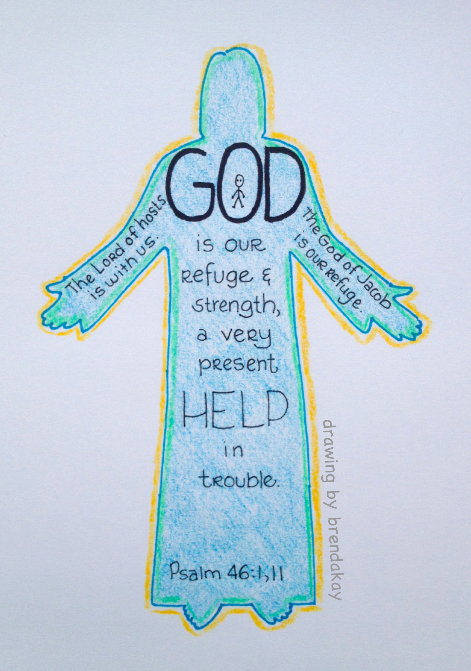 GOD
is our
refuge &
strength,
a very
present
HELP
in
trouble.
The Lord of hosts
is with us.
The God of Jacob
is our refuge.
Psalm 46:1,11
drawing by brendakay